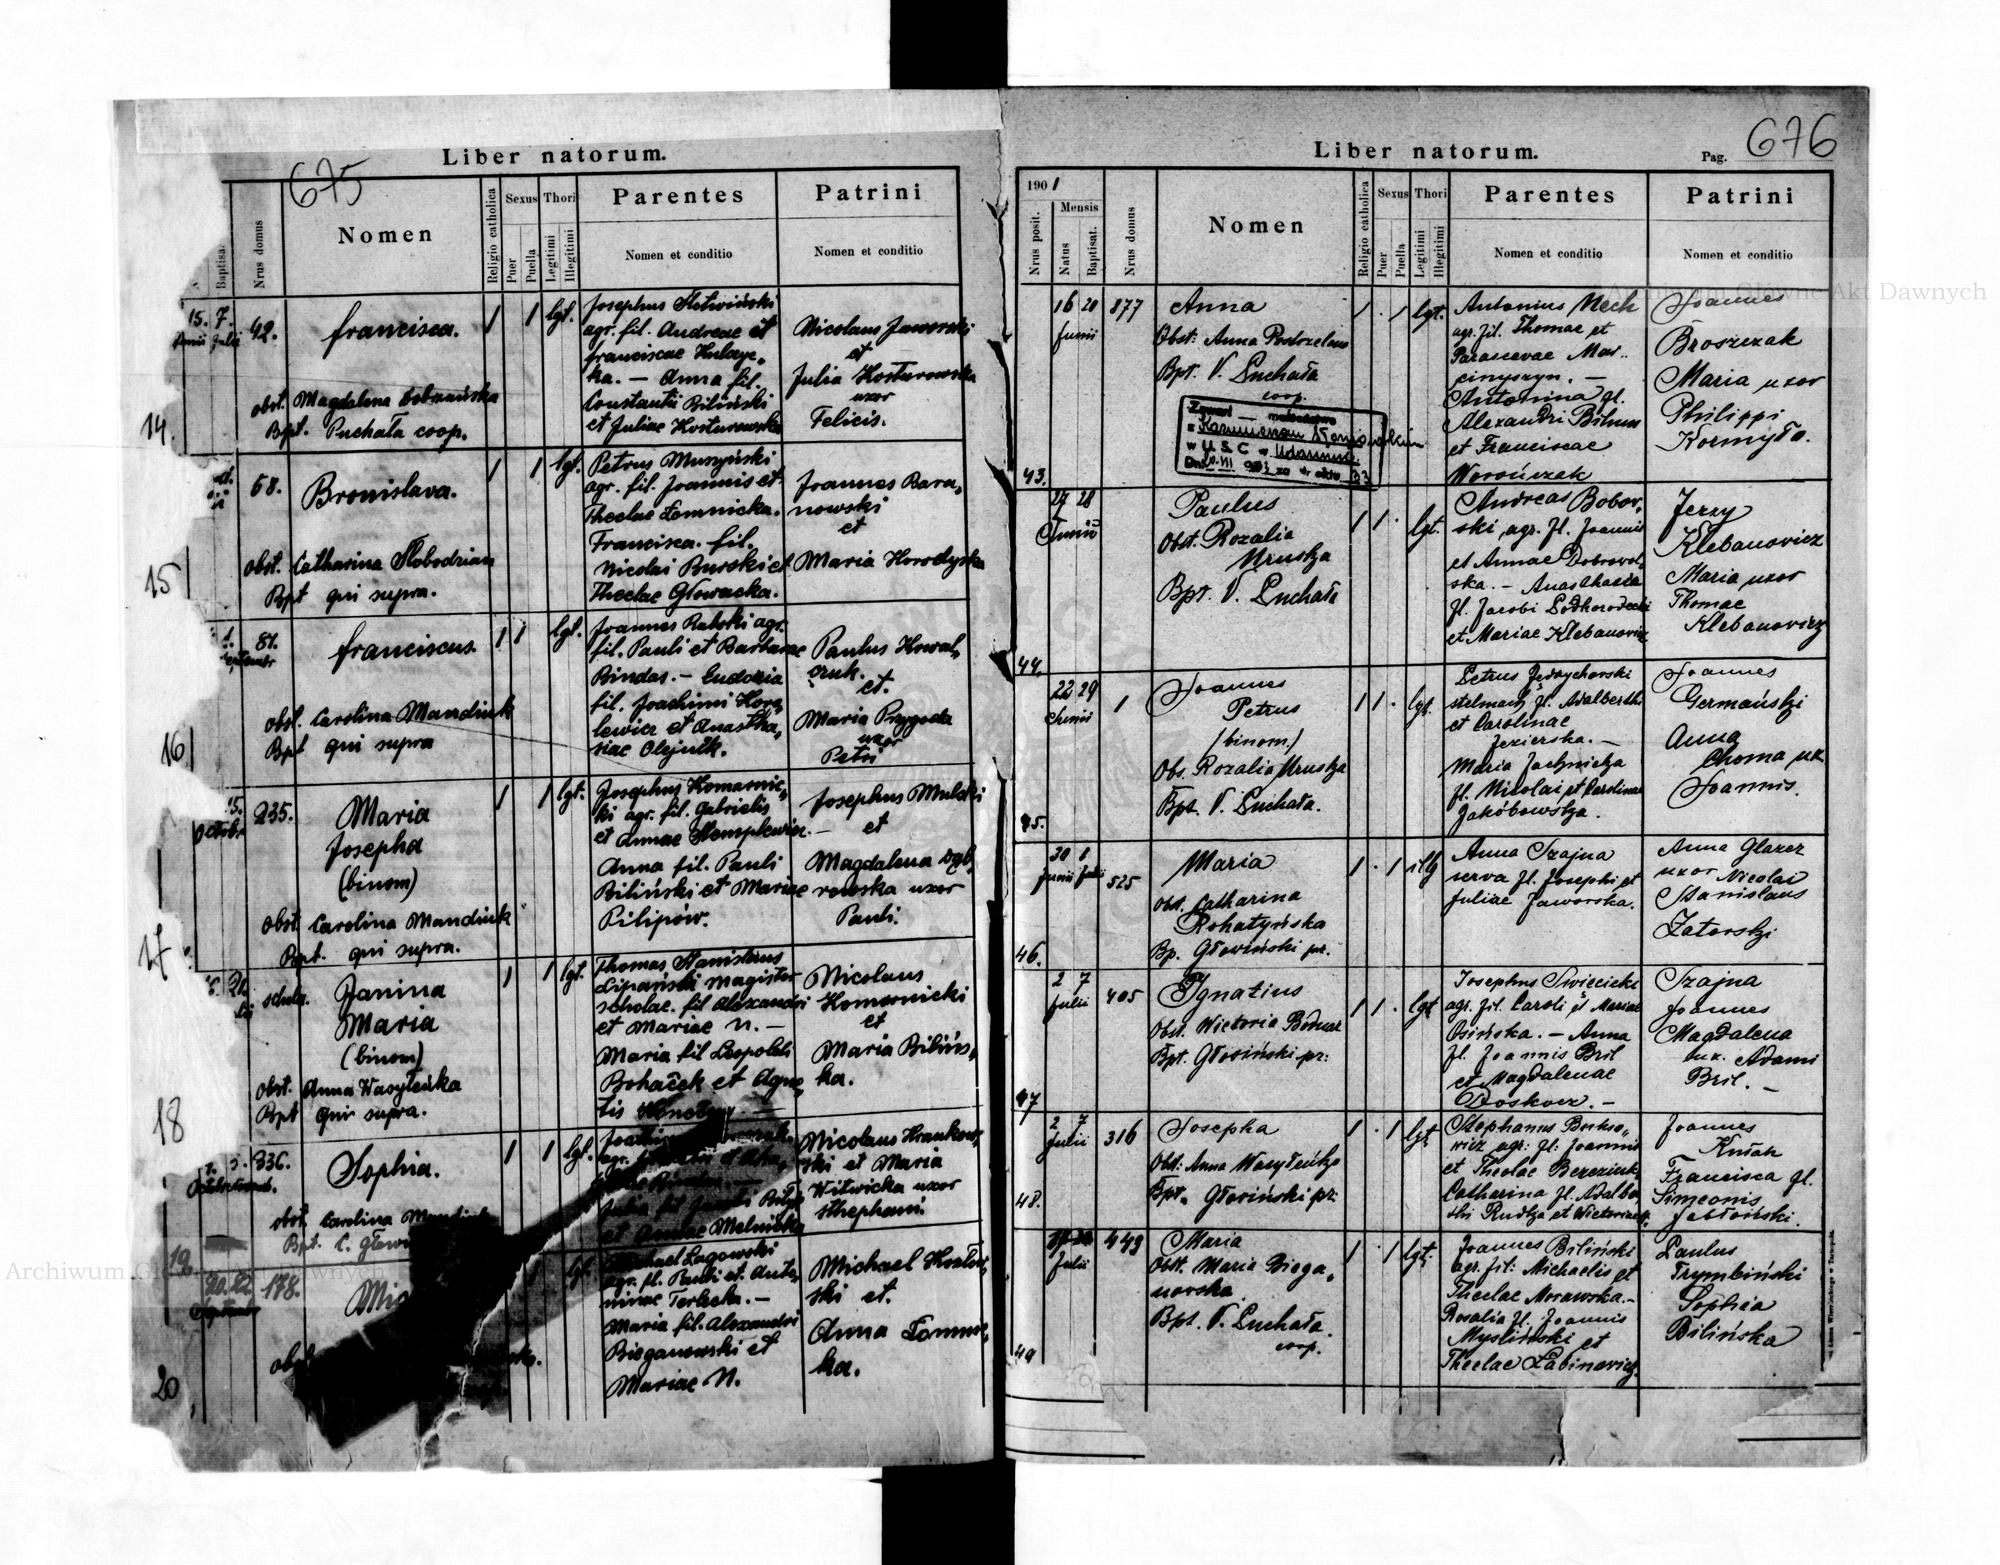 Liber natorum.
675
Baptisa.
Nrus domus
Nomen
Religio catholica
Sexus
Puer
Puella
Thori
Legitimi
Illegitimi
Parentes
Nomen et conditio
Patrini
Nomen et conditio
14.
15. 7.
Junii Julii
42.
Francisca.
obst. Magdalena
Bpt. Puchała coop.
1 1 lgt.
Josephus
agr. fil. Andreae et
Franciscae
ka. — Anna fil.
Constantii Biliński
et Juliae Kosturowska
Nicolaus Jaworski
et
Julia Kosturowska
uxor
Felicis.
15
68.
Bronislava.
obst. Catharina Slobodzian
Bpt qui supra.
1 1 lgt.
Petrus Muszyński
agr. fil. Joannis et
Theclae Łomnicka.
Francisca. fil.
Nicolai Burski et
Theclae Głowacka.
Joannes Bara,
nowski
et
Maria Horodyska
16
1.
Septembr
81.
Franciscus.
obst. Carolina Mandiuk
Bpt qui supra
1 1 lgt.
Joannes Rabski agr.
fil. Pauli et Barbarae
Bindas. — Eudoxia
fil. Joachimi Koro,
lewicz et Anasta,
siae Olejnik.
Paulus Kowal,
czuk.
et.
Maria Przygoda
uxor
Petri
17
15.
Octobr
235.
Maria
Josepha
(binom)
obst. Carolina Mandiuk
Bpt. qui supra.
1 1 lgt.
Josephus Komarnic,
ki agr. fil. Gabrielis
et Annae Stemplewicz. —
Anna fil. Pauli
Biliński et Mariae
Pilipów.
Josephus Mulski
et
Magdalena Dąb,
rowska uxor
Pauli.
18
schola.
Janina
Maria
(binom)
obst. Anna Wasyleńka
Bpt qui supra.
1 1 lgt.
Thomas Stanislaus
Lipański magister
scholae. fil Alexandri
et Mariae N. —
Maria fil Leopoldi
Bohaček et Agne,
tis
Nicolaus
Komornicki
et
Maria Bilińs,
ka.
19
336.
Sophia.
obst. Carolina Mandiuk
Bpt. C.
1 1 lgt.
agr.
Julia fil
et Annae Melnicka
Nicolaus Hrankow,
ski et Maria
Witwicka uxor
Stephani
20
20. 22.
Septembr
178.
Mic
obst
lgt.
Michael Łagowski
agr. fl. Pauli et Anto,
ninae Terlecka. —
Maria fil. Alexandri
Bieganowski et
Mariae N.
Michael Kozłow,
ski et.
Anna Łomnic,
ka.
Liber natorum.
Pag. 676
1901
Nrus posit.
Mensis
Natus
Baptisat.
Nrus domus
Nomen
Religio catholica
Sexus
Puer
Puella
Thori
Legitimi
Illegitimi
Parentes
Nomen et conditio
Patrini
Nomen et conditio
43.
16 20
Junii
877
Anna
Obst: Anna
Bpt. V. Puchała
coop.
1 . 1 lgt.
Antonius Mech
agr. fil. Thomae et
Parascevae Mar..
cinyszyn. —
Antonina fl.
Alexandri
et Franciscae
Worończak
Joannes
Broszczak
Maria uxor
Philippi
Kormyło.
w U S C w
44.
27 28
Junii
Paulus
Obst. Rozalia
Mruszka
Bpt. V. Puchała
1 1 . lgt.
Andreas Bobow,
ski agr. fl. Joannis
et Annae Dobrowol,
ska. — Anasthasia
fl. Jacobi Podhorodecki
et Mariae Klebanowicz
Jerzy
Klebanowicz
Maria uxor
Thomae
Klebanowicz
45.
22 29
Junii
1
Joannes
Petrus
(binom)
Obs. Rozalia Mruszka
Bpt. V. Puchała.
1 1 . lgt.
Petrus
stelmach fl. Adalberti
et Carolinae
Jezierska. —
Maria
fl. Nikolai et Carolinae
Jakóbowska.
Joannes
Germański
Anna
Choma ux.
Joannis.
46.
30 1
Junii Julii
525
Maria
Obst. Catharina
Rohatyńska
Bp. Głowiński pr.
1 . 1 illg
Anna Szajna
serva fl. Josephi et
Juliae Jaworska.
Anna Glazer
uxor Nicolai
Stanislaus
Zatorski
47
2 7
Julii
405
Ignatius
Obst. Wictoria Bodnar
Bpt. Głowiński pr:
1 1 . lgt
Josephus Swiecicki
agr. fil. Caroli et Mariae
Osińska. — Anna
fl. Joannis Bril
et Magdalenae
Doskocz. —
Szajna
Joannes
Magdalena
ux. Adami
Bril. —
48.
2 7
Julii
316
Josepha
Obst: Anna Wasyleńko
Bpt. Głowiński pr.
1 . 1 lgt
Stephanus
wicz agr: fl: Joannis
et Theclae
Catharina fl. Adalbe
rti Rudka et
Joannes
Francisca fl.
Simeonis
Jabłoński.
49
Julii
443
Maria
Obst. Maria Biega,
nowska
Bpt. V. Puchała.
coop.
1 . 1 lgt.
Joannes Biliński
agr. fil: Michaelis et
Theclae Morawska. —
Rosalia fl. Joannis
Myśliński et
Theclae Łabinowicz.
Paulus
Trymbiński
Sophia
Bilińska
Archiwum Główne Akt Dawnych
Archiwum Główne Akt Dawnych